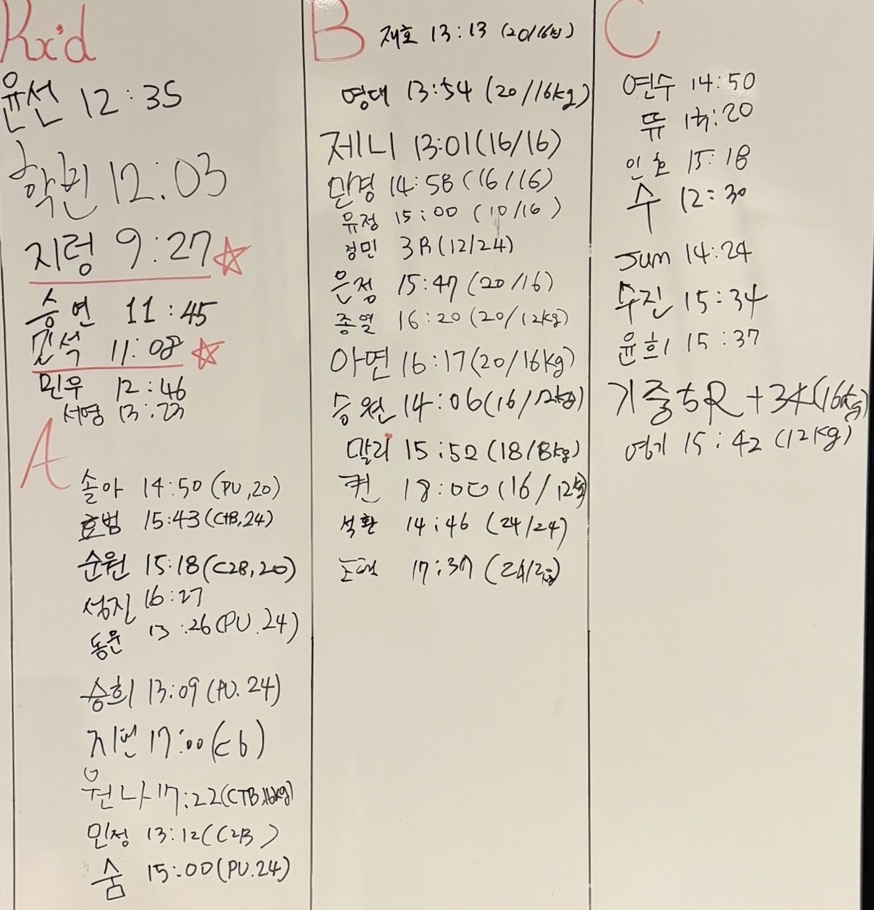 Rx'd
윤선 12:35
학빈 12:03
지령 9:27
승연 11:45
민석 11:08
민우 12:46
서영
A
솔아 14:50 (PU,20)
효범 15:43 (CTB,24)
순원 15:18 (C2B,20)
성진 16:27
동윤 13:26 (PU.24)
승희 13:09 (PU.24)
지변 17:00 (
원나 17:22 (CTB.16kg)
민정 13:12 (C2B)
숨 15:00 (PU.24)
B
재호 13:13 (20/16kg)
영대 13:54 (20/16kg)
제니 13:01 (16/16)
민경 14:58 (16/16)
유정 15:00 (10/16)
정민 3R (12/24)
은정 15:47 (20/16)
종열 16:20 (20/12kg)
아연 16:17 (20/16kg)
승원 14:06 (16/12kg)
말리 15:52
퀸 18:00 (16/12kg)
석환 14:46 (24/24)
17:37
C
연수 14:50
뜌
인호 15:18
수 12:30
Jum 14:24
수진 15:34
윤희 15:37
기중 5R + 34 (16kg)
여기 15:42 (12kg)